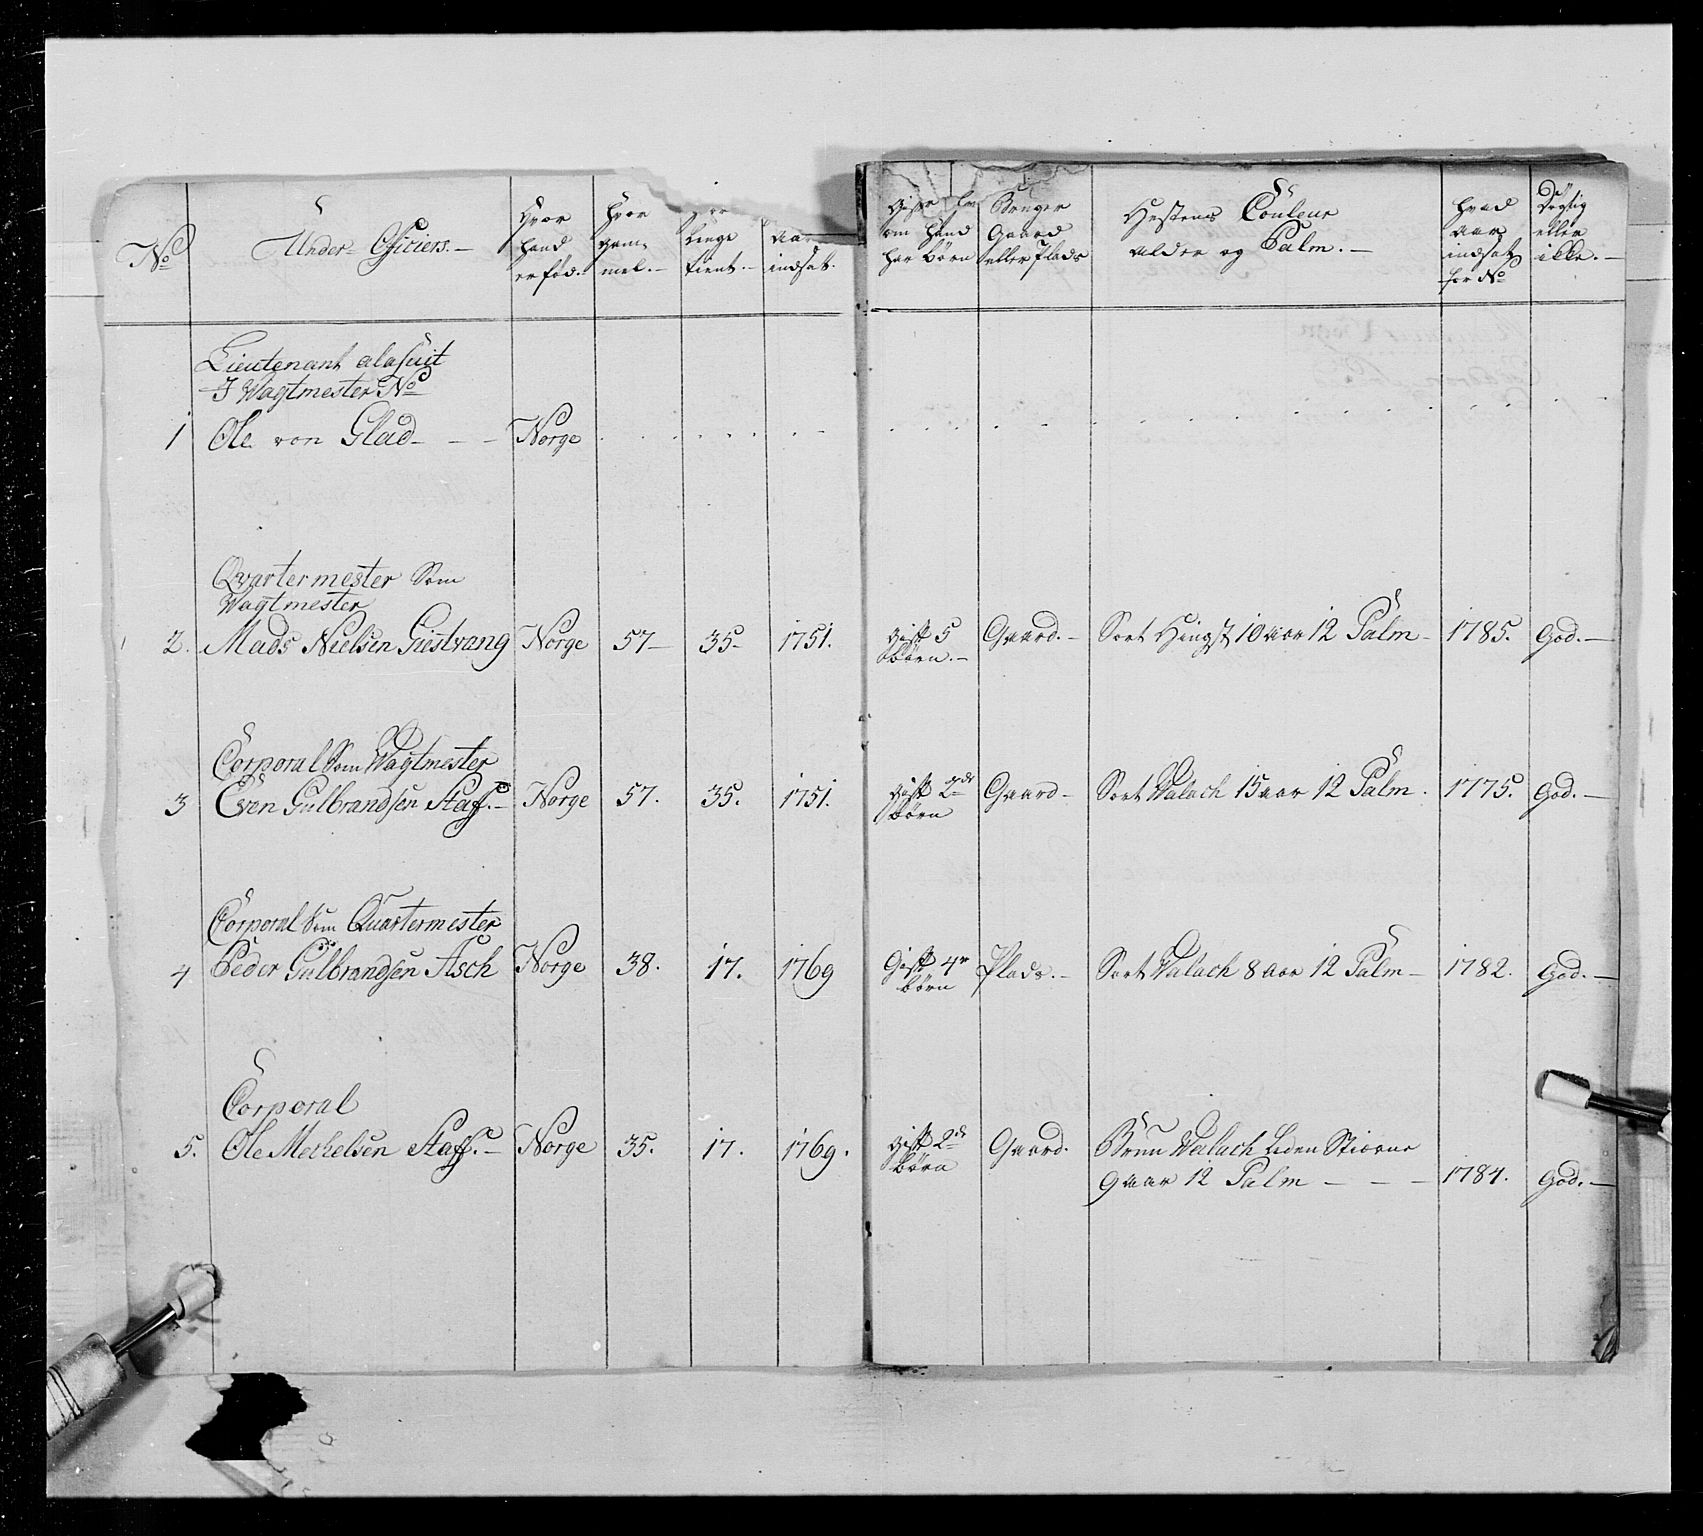 No
Under-Officiers.-
Hvor
hand
er fød.
Hvor
gam-
mel.-
Længe
tient.-
Aar
indsat.
Gift
om hand
har børn
Bruger
Gaard
eller Plads
Hestens Couleur
alder og Palm.-
hvad
aar
indsat
for No
Dygtig
eller
ikke.-
Lieutenant alasuit
I Wagtmester No
1 Ole von Glad - - - Norge
Qvartermester Som
Wagtmester
2. Mads Nielsen Giestvang Norge 57- 35- 1751. Gift 5 Gaard.- Sort Hingst 10 aar 12 Palm- 1785. God.-
børn.-
Corporal Som Wagtmester
3 Even Gulbrandsen Staff.- Norge 57. 35. 1751. Gift 2de Gaard- Sort Valach 15 aar 12 Palm. 1775. God.-
børn
Corporal Som Quartermester
4 Peder Gulbrandsen Asch Norge 38. 17. 1769 Gift 4r Plads.- Sort Valach 8 aar 12 Palm- 1782. God.-
børn
Corporal
5. Ole Mechelsen Staff.- Norge 35. 17. 1769. Gift 2de Gaard. Brun Valach Liden Stierne
børn
9 aar 12 Palm - - - 1784. God.-